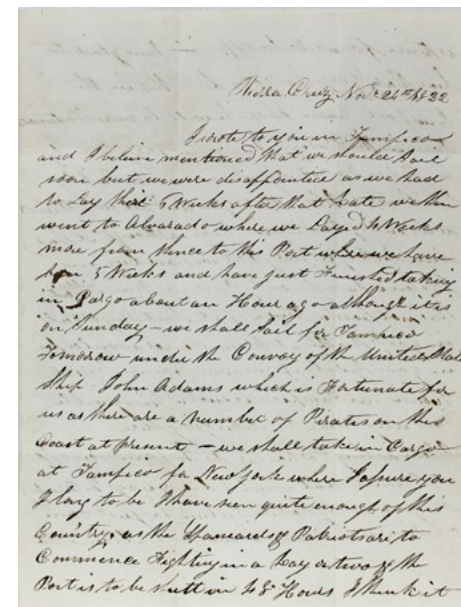 Verra Cruz Nov 24th 1822
I wrote to you in Tampico
and I believe mentioned that we should Sail
soon but we were disappointed as we had
to Lay there 6 Weeks after that Date we then
went to Alvarado where we Layed 4 Weeks
more from thence to this Port where we have
5 Weeks and have just Finished taking
in Cargo about an Hour ago although it is
on Sunday - we shall Sail for Tampico
Tomorrow under the Convoy of the United State
Ship John Adams which is Fortunate for
us as there are a number of Pirates on this
Coast at present - we shall take in Cargo
at Tampico for New York where I assure you
I long to be I have seen quite enough of this
Country, as the Spaniards & Patriots are to
Commence Fighting in a Day or two & the
Port is to be shutt in 48 Hours I think it